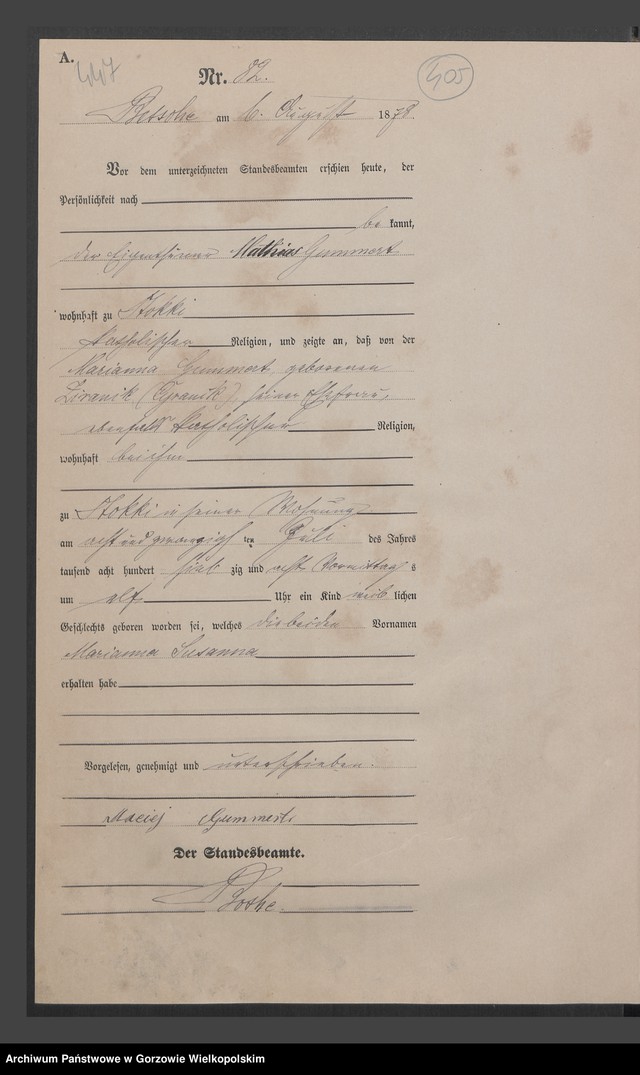 A.
447
405
Nr. 82.
Betsche am 6. August 1878.
Vor dem unterzeichneten Standesbeamten erschien heute, der
Persönlichkeit nach
be kannt,
der Eigenthümer Mathias Gummert
wohnhaft zu Stokki
katholischer Religion, und zeigte an, daß von der
Marianna Gummert geborenen
Ziranik (Cyranik) seiner Ehefrau,
ebenfalls katholischer Religion,
wohnhaft bei ihm
zu Stokki in seiner Wohnung
am acht und zwanzigsten Juli des Jahres
tausend acht hundert sieb zig und acht Vormittag s
um elf Uhr ein Kind weib lichen
Geschlechts geboren worden sei, welches die beiden Vornamen
Marianna Susanna
erhalten habe
Vorgelesen, genehmigt und unterschrieben.
Maciej Gummert
Der Standesbeamte.
Bothe.
Archiwum Państwowe w Gorzowie Wielkopolskim